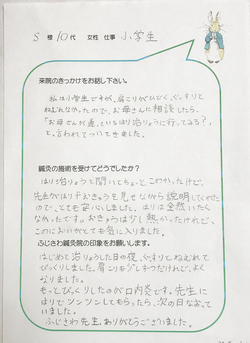 S 様 10代 女性 仕事 小学生
来院のきっかけをお話し下さい。
私は小学生ですが、肩こりがひどく、ぐっすりと
ねむれなかったので、お母さんに相談したら、
「お母さんが通っているはり治りょうに行ってみる?」
と、言われてついてきました。
鍼灸の施術を受けてどうでしたか?
はり治りょうと聞いてちょっと、こわかったけど、
先生がはりやおきゅうを見せながら説明してくれた
ので、とても安心しました。はりは全然いたく
なかったです。おきゅうは少し熱かったけれど、
このにおいがとても気に入りました。
ふじさわ鍼灸院の印象をお願いします。
はじめに治りょうした日の夜、ぐっすりとねむれて
びっくりしました。肩こりも少しずつだけれど、よく
なりました。
もっとびっくりしたのが口内炎です。先生に
はりでツンツンしてもらったら、次の日なおって
いました。
ふじさわ先生、ありがとうございました。